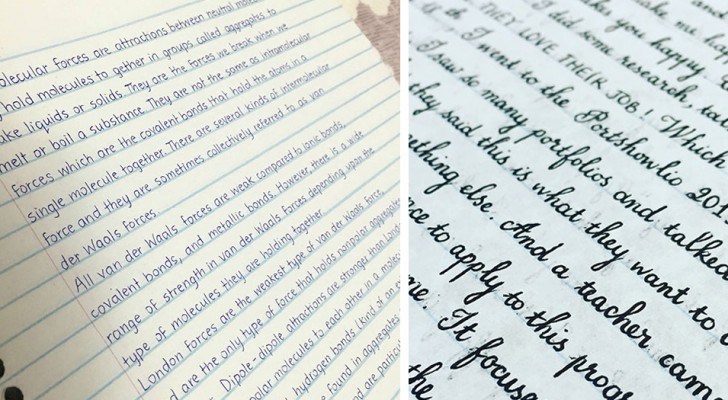 olecular forces are attractions between neutral
hold molecules to gether in groups called aggregates to
ake liquids or solids. They are the forces we break when we
melt or boil a substance. They are not the same as intramolecular
forces which are the covalent bonds that hold the atoms in a
single molecule together. There are several kinds of intermolecular
force and they are sometimes collectively referred to as van
der Waals forces.
All van der Waals forces are weak compared to ionic bonds,
covalent bonds, and metallic bonds. However, there is a wide
range of strength in van der Waals forces depending upon the
type of molecules they are holding together.
London forces are the weakest type of van der Waals force,
d are the only type of force that holds nonpolar aggregates
Dipole-dipole attractions are stronger than Lond
polar molecules to each other in a molec
hydrogen bonds (kind of an e
found in aggregates
nd are partic
make me
ke you happy
I did some research, tal
THEY LOVE THEIR JOB! Which
I went to the Portshowlio 201
I saw so many portfolios and talked
they said this is what they want to d
ething else. And a teacher came
ce to apply to this progr
me. It focuse
the